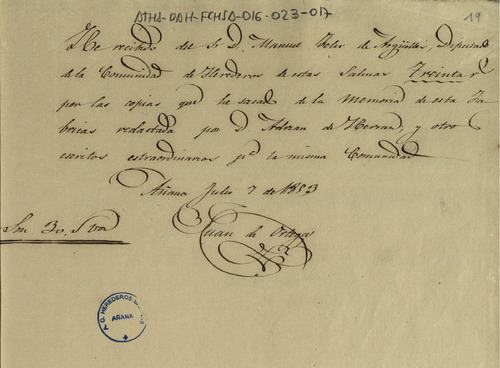 ATHA-DAH-FCHSA-016-023-017
19
He recibido del Sr D. Manuel de Argüelles, Diputado
de la Comunidad de Herederos de estas Salinas Treinta r
por las copias que he sacado de la Memoria de esta Fa-
bricas redactada por D Adrian de y otros
escritos estraordinarios pa la misma Comunidad
Añana Julio 7 de 1853
Juan de Ortega
Son 30. rs von
HEREDEROS
AÑANA